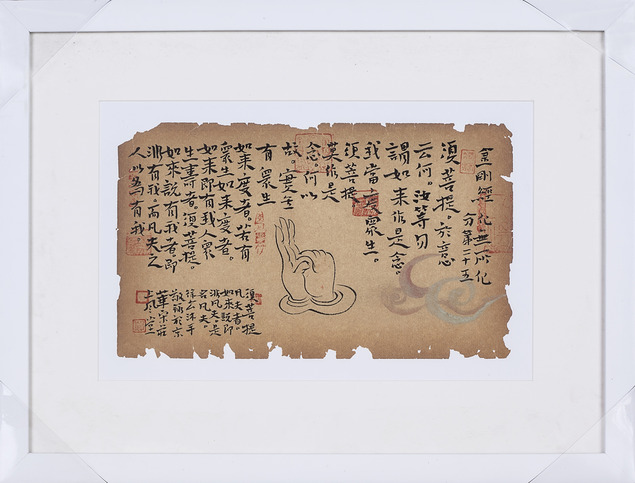 金剛經 化無所化
分第二十五
須菩提。於意
云何。汝等勿
謂如來作是念。
我當度眾生。
須菩提
莫作是
念。何以
故。實无
有眾生
如來度者。若有
眾生如來度者。
如來即有我人眾
生壽者。須菩提。
如來說有我者即
非有我。而凡夫之
人以為有我
須菩提
凡夫者。
如來說即
非凡夫。是
名凡夫。
沐手
敬錄於京
華宋莊